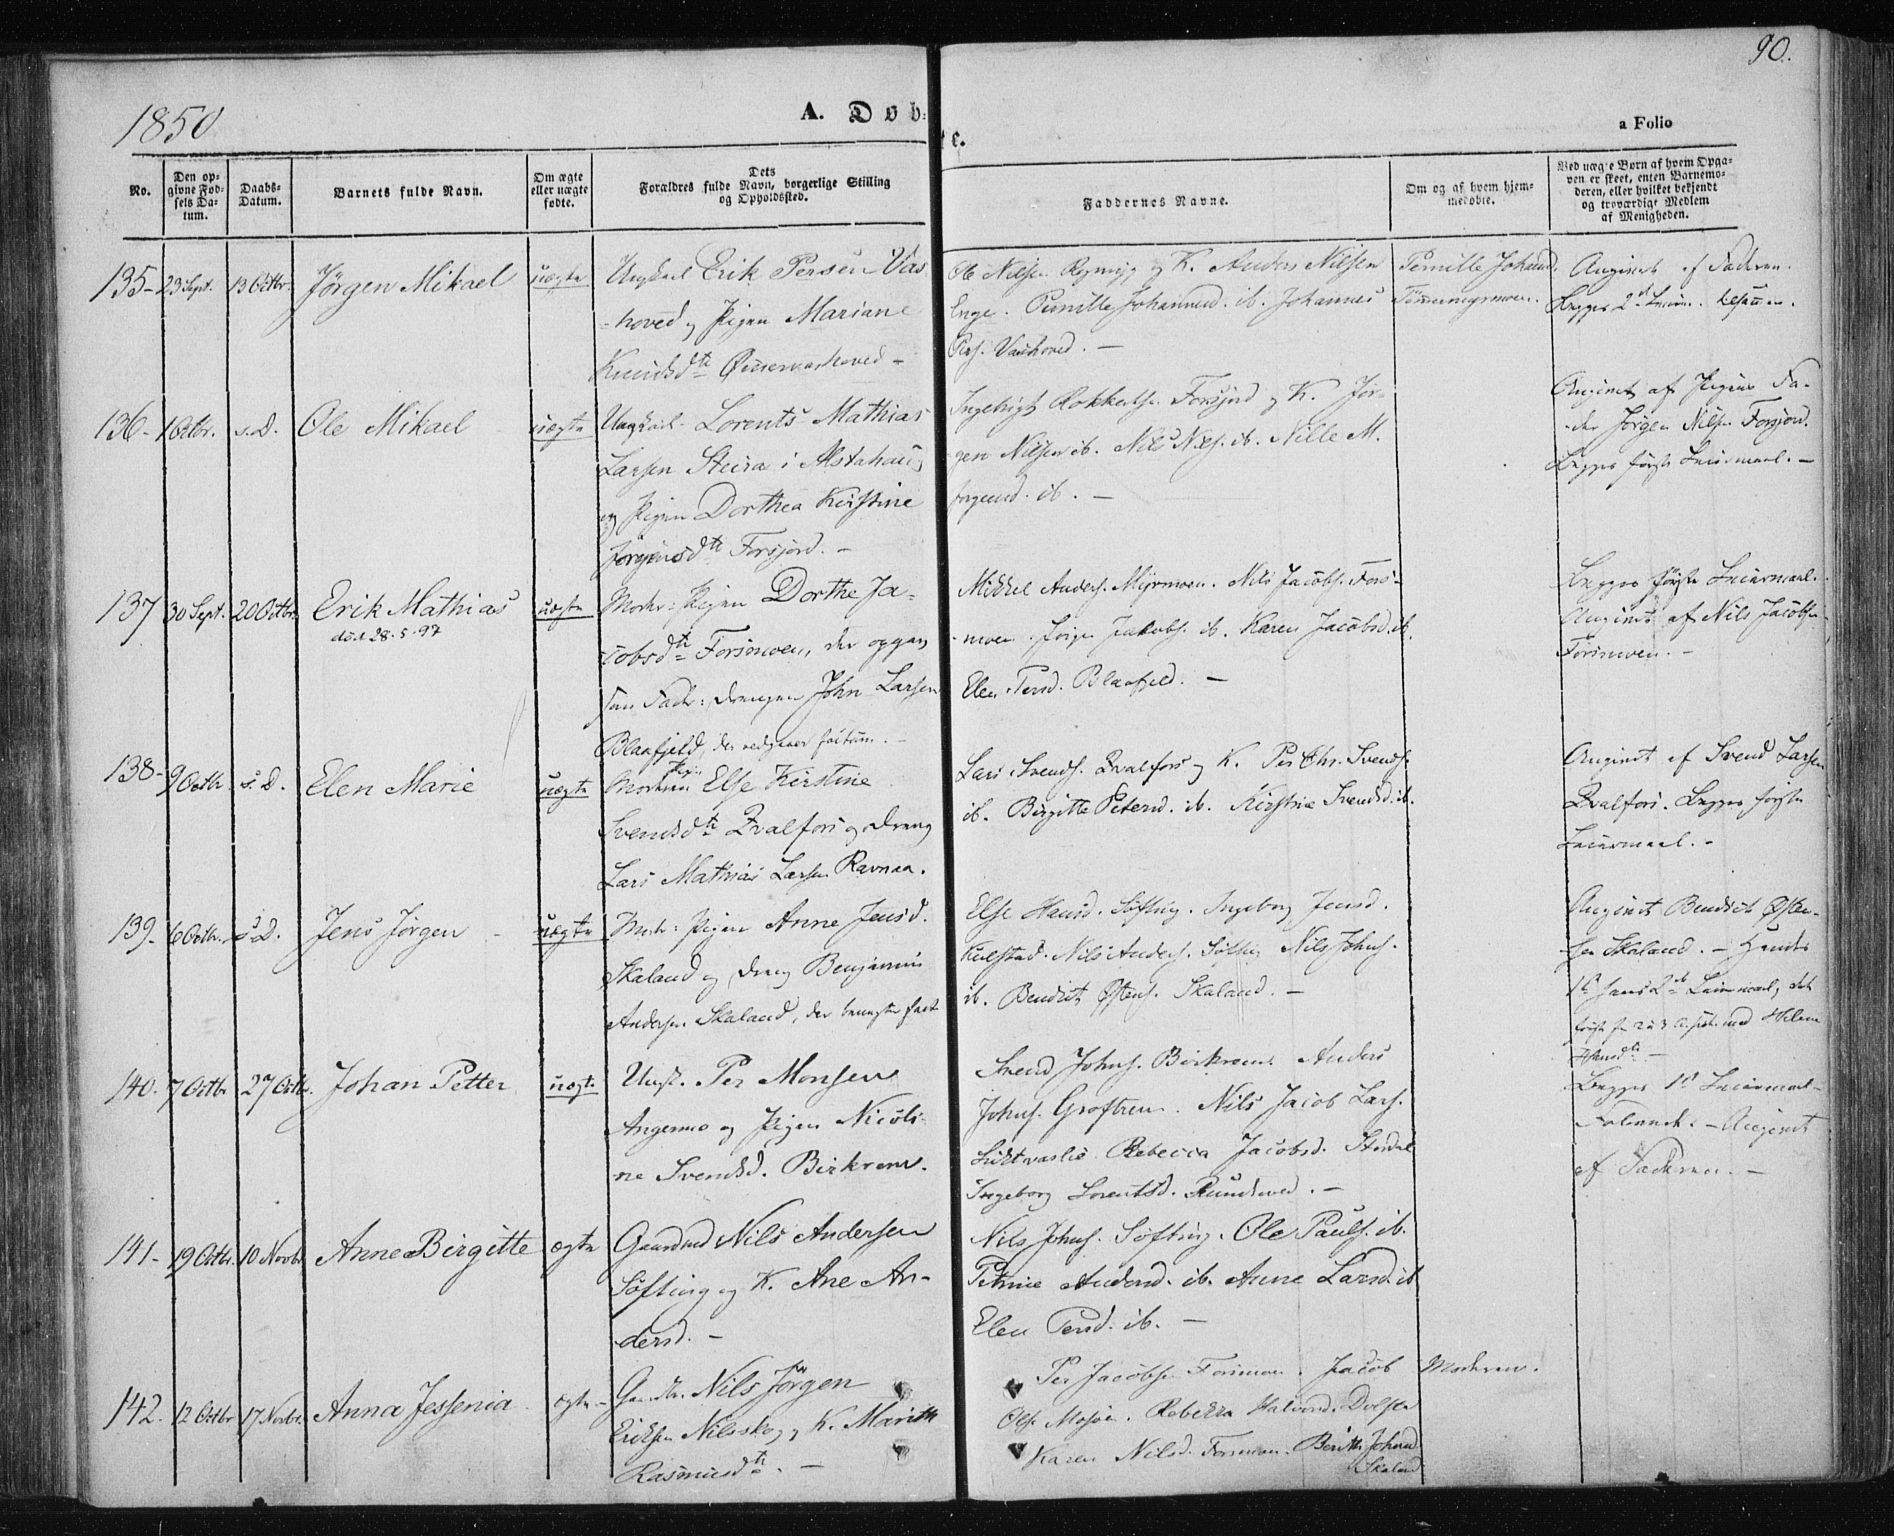 90.
1850
A. Døb-
te.
a Folio
No.
Den op-
givne Fød-
sels Da-
tum.
Daabs-
Datum.
Barnets fulde Navn.
Om ægte
eller uægte
fødte.
Dets
Forældres fulde Navn, borgerlige Stilling
og Opholdssted.
Faddernes Navne.
Om og af hvem hjem-
medøbte.
Ved uægte Børn af hvem Opga-
ven er skeet, enten Barnemo-
deren, eller hvilket bekjendt
og troværdigt Medlem
af Menigheden.
135- 23 Sept. 13 Octbr. Jörgen Mikael uægte
Ungkarl Erik Persen Vas
-hoved og Pigen Mariane
Knudsdtr
Ole Nilsen og K. Anders Nilsen
Enge. Pernille Johannesd. ib. Johannes
Pers. Vashoved. —
Pernille Johannd.
Angivet af Faderen.
136- 1 Octbr. s.D. Ole Mikael uægte
Ungkarl Lorents Mathias
Larsen Steira i Alstahaug
og Pigen Dorthea Kirstine
Jörgensdtr Forsjord. -
Forsjord og K. Jör-
gen Nilsen ib. Nils Nils. ib. Nille M.
ib. —
Angivet af Pigens Fa-
der Jörgen Nilsen Forsjord.
Begges förste Leiermaal. —
137 30 Sept. 20 Octbr. Erik Mathias uægte
död 28.5.97
Moder: Pigen Dorthe Ja-
cobsdtr Forsmoen, der opgav
som Fader: Drengen John Larsen
Blaafjeld, der vedgaaer factum. -
Mikkel Anders. Nils Jacobs. Fors-
moen. Jörgen Jakobs. ib. Karen Jacobsd. ib.
Elen Persd. Blaafjeld. —
Begges förste Leiermaal.
Angivet af Nils Jacobsen
Forsmoen. -
138- 9 Octbr. s.D. Elen Marie uægte
Moderen Pigen Else Kirstine
Svendsdtr Kvalfors og Dreng
Lars Mathias Larsen Ravnaa.
Lars Svends. Kvalfors og K. Per Chr. Svends.
ib. Birgitte Petersd. ib. Kirstine Svendsd. ib.
Angivet af Svend Larsen
Kvalfors. Begges förste
Leiermaal. -
139- 6 Octbr. s.D. Jens Jörgen uægte
Modr: Pigen Anne Jensd.
Skaland og Dreng Benjamin
Andersen Skaland, der
Else Hansd. Söfting. Ingeborg Jensd.
Kulstad. Nils Anders. Söfting Nils Johns.
ib. Bendict Östens. Skaland. —
Angivet Bendict Östen-
sen Skaland. - Hendes
1ste hans 2det Leiermaal, det
förste med Helene
Hansdtr —
140. 7 Octbr. 27 Octbr. Johan Petter uægte
Ungk. Per Monsen
Angermo og Pigen Nicoli-
ne Svendsd. Birkrem.
Svend Johns. Birkrem. Anders
Johns. Groftrem. Nils Jacob Lars.
Rebecca Jacobsd.
Ingeborg Lorentsd. —
Begges 1ste Leiermaal
- Angivet
af Faderen. —
141- 19 Octbr. 10 Novbr. Anne Birgitte ægte
Gaardmd Nils Andersen
Söfting og K. Ane An-
dersd. -
Nils Johns. Söfting. Ole Pauls. ib.
Andersd. ib. Anne Larsd. ib
Elen Persd. ib. —
142. 12 Octbr. 17 Novbr. Anna Jessenia ægte -
Nils Jörgen
Eriksen Nilsskog og K. Marith
Rasmusdtr. —
Per Jacobsen Forsmoen. Jacob
Ols. Mosjöen. Rebekka Halvord. Dolsta
Karen Nilsd. Forsmoen. Berith Johnsd.
Skaland
Moderen.